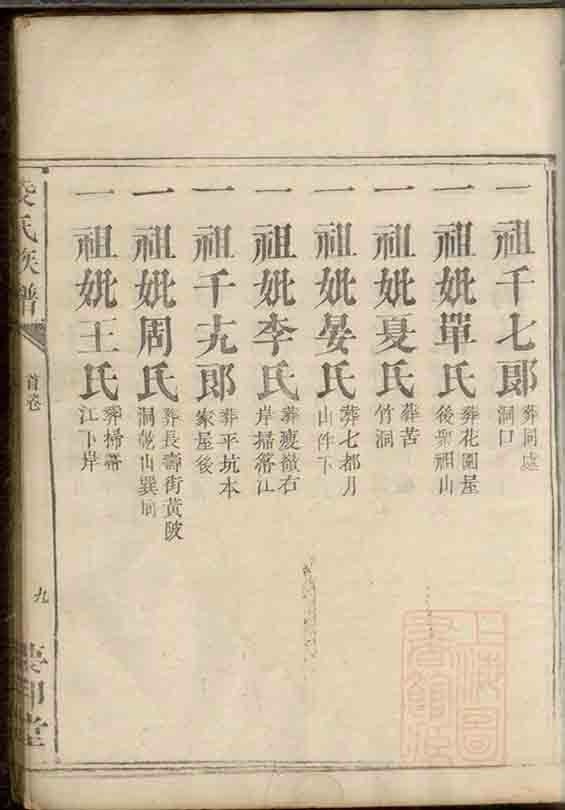 一祖千七郎葬同處洞口
一祖妣單氏葬花園屋後聚祖山
一祖妣夏氏葬苦竹洞
一祖妣晏氏葬七都月山伴下
一祖妣李氏葬廋嶺右岸埽箒江
一祖千九郎葬平坑本家屋後
一祖妣周氏葬長壽街黃陂洞乾山巽向
一祖妣王氏葬埽箒江下岸
氏族譜
首卷
九
堂
上海圖書館藏